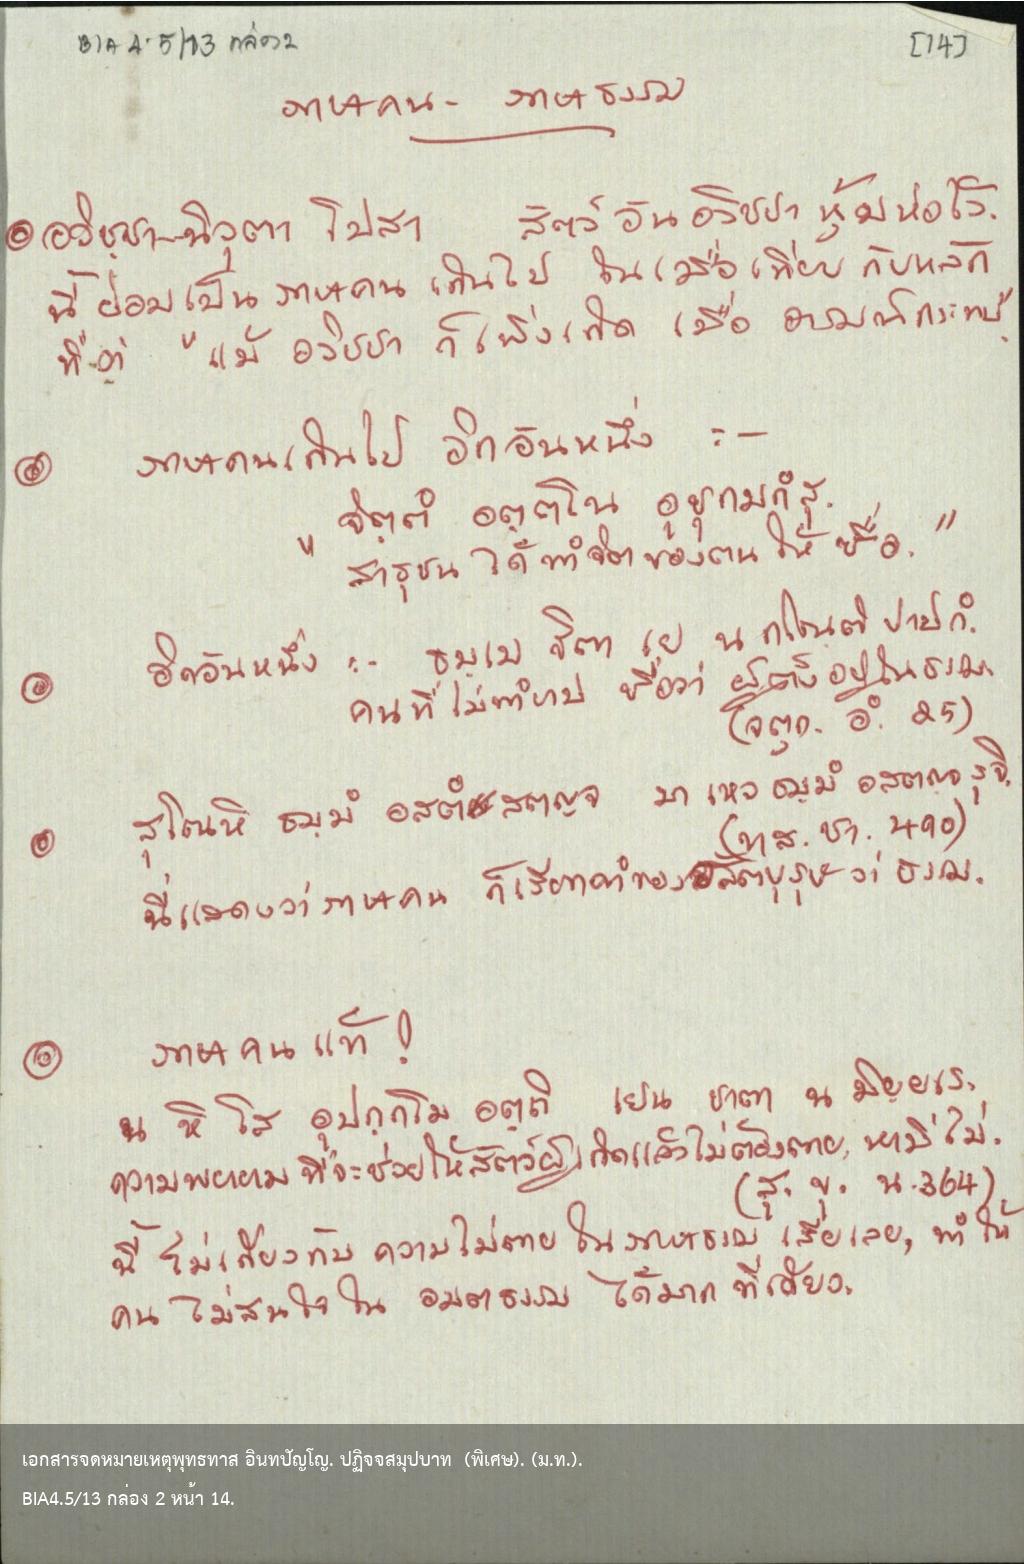 BIA 4.5/13 กล่อง 2
[14]
ภาษาคน - ภาษาธรรม
อวิชฺชา-นิวุตา โปสา สัตว์อันอวิชชาหุ้มห่อไว้.
นี้ย่อมเป็นภาษาคนเกินไป ในเมื่อเทียบกับหลัก
ที่ว่า "แม้อวิชชา ก็เพิ่งเกิด เมื่อ อารมณ์กระทบ"
ภาษาคนเกินไป อีกอันหนึ่ง :-
"จิตฺตํ อตฺตโน อุชุกมกํสุ.
สาธุชน ได้ทำจิตของตนให้ ซื่อ."
อีกอันหนึ่ง :- ธมฺเม ฐิตา เย น กโรนฺติ ปาปกํ.
คนที่ไม่ทำบาป ชื่อว่า ผู้ตั้งอยู่ในธรรม.
(จตุก. อํ. 25)
สุโณหิ ธมฺมํ อสตํ สตญฺจ มา เหว ธมฺมํ อสตญฺจ รุจิ.
(ทส. ชา. 490)
นี่แสดงว่าภาษาคน ก็เรียกคำของอสัตบุรุษว่า ธรรม.
ภาษาคนแท้ !
น หิ โส อุปกฺกโม อตฺถิ เยน ชาตา น มิยฺยเร.
ความพยายามที่จะช่วยให้สัตว์ผู้เกิดแล้วไม่ต้องตาย, หามีไม่.
(สุ. ขุ. น. 364)
นี้ ไม่เกี่ยวกับ ความไม่ตาย ในภาษาธรรม เสียเลย, ทำให้
คน ไม่สนใจใน อมตธรรม ได้มาก ทีเดียว.
เอกสารจดหมายเหตุพุทธทาส อินทปัญโญ. ปฏิจจสมุปบาท (พิเศษ). (ม.ท.).
BIA4.5/13 กล่อง 2 หน้า 14.